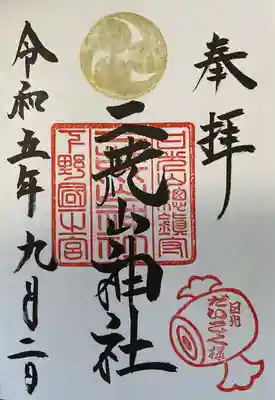 奉拝
二荒山神社
日光総鎮守
下野國一之宮
日光
だいこく様
令和五年九月二日